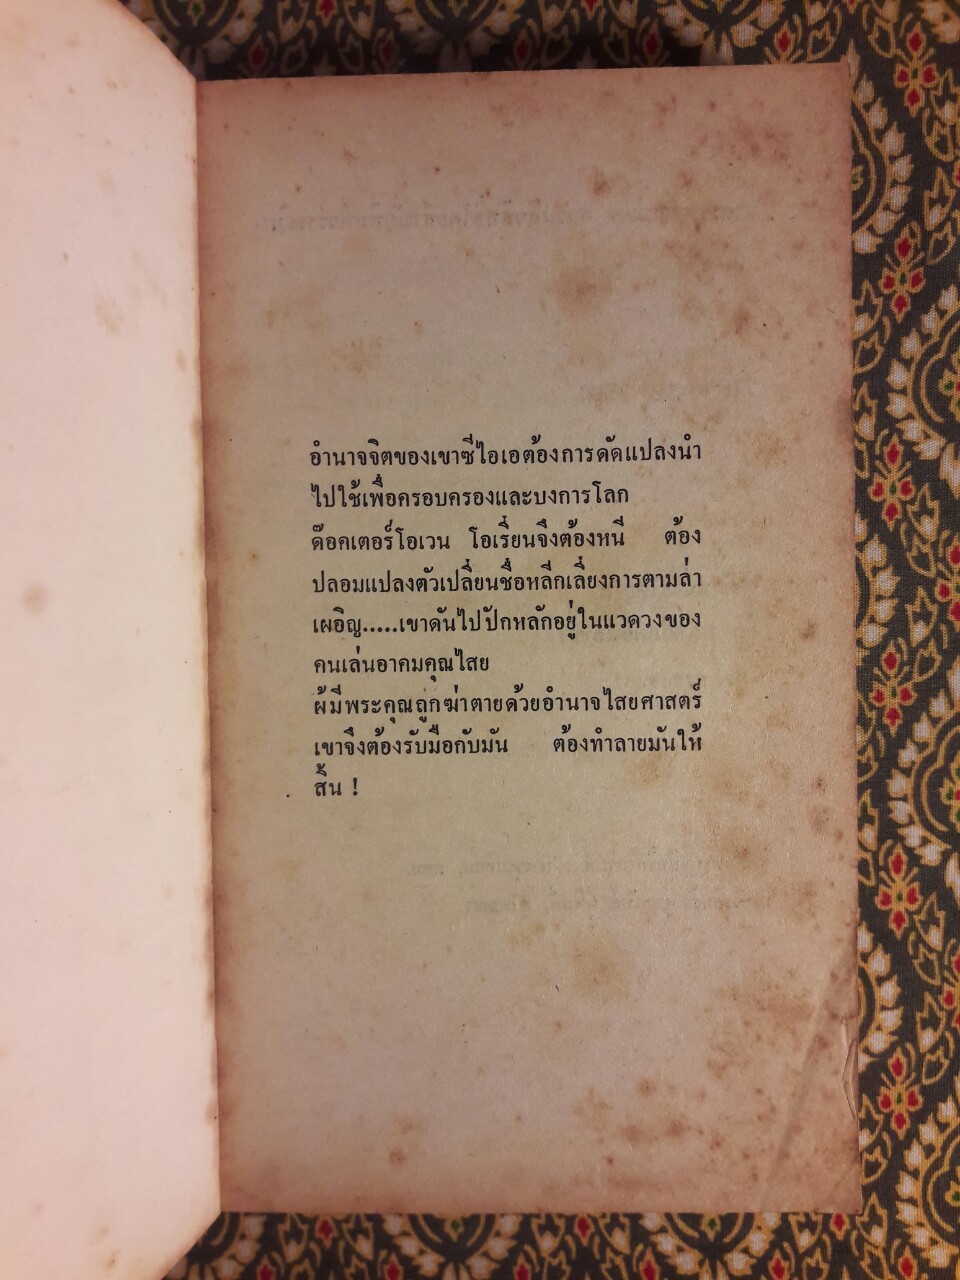 อำนาจจิตของเขาซีไอเอต้องการดัดแปลงนำ
ไปใช้เพื่อครอบครองและบงการโลก
ด๊อคเตอร์โอเวน โอเรี่ยนจึงต้องหนี ต้อง
ปลอมแปลงตัวเปลี่ยนชื่อหลีกเลี่ยงการตามล่า
เผอิญ.....เขาดันไปปักหลักอยู่ในแวดวงของ
คนเล่นอาคมคุณไสย
ผู้มีพระคุณถูกฆ่าตายด้วยอำนาจไสยศาสตร์
เขาจึงต้องรับมือกับมัน ต้องทำลายมันให้
สิ้น !